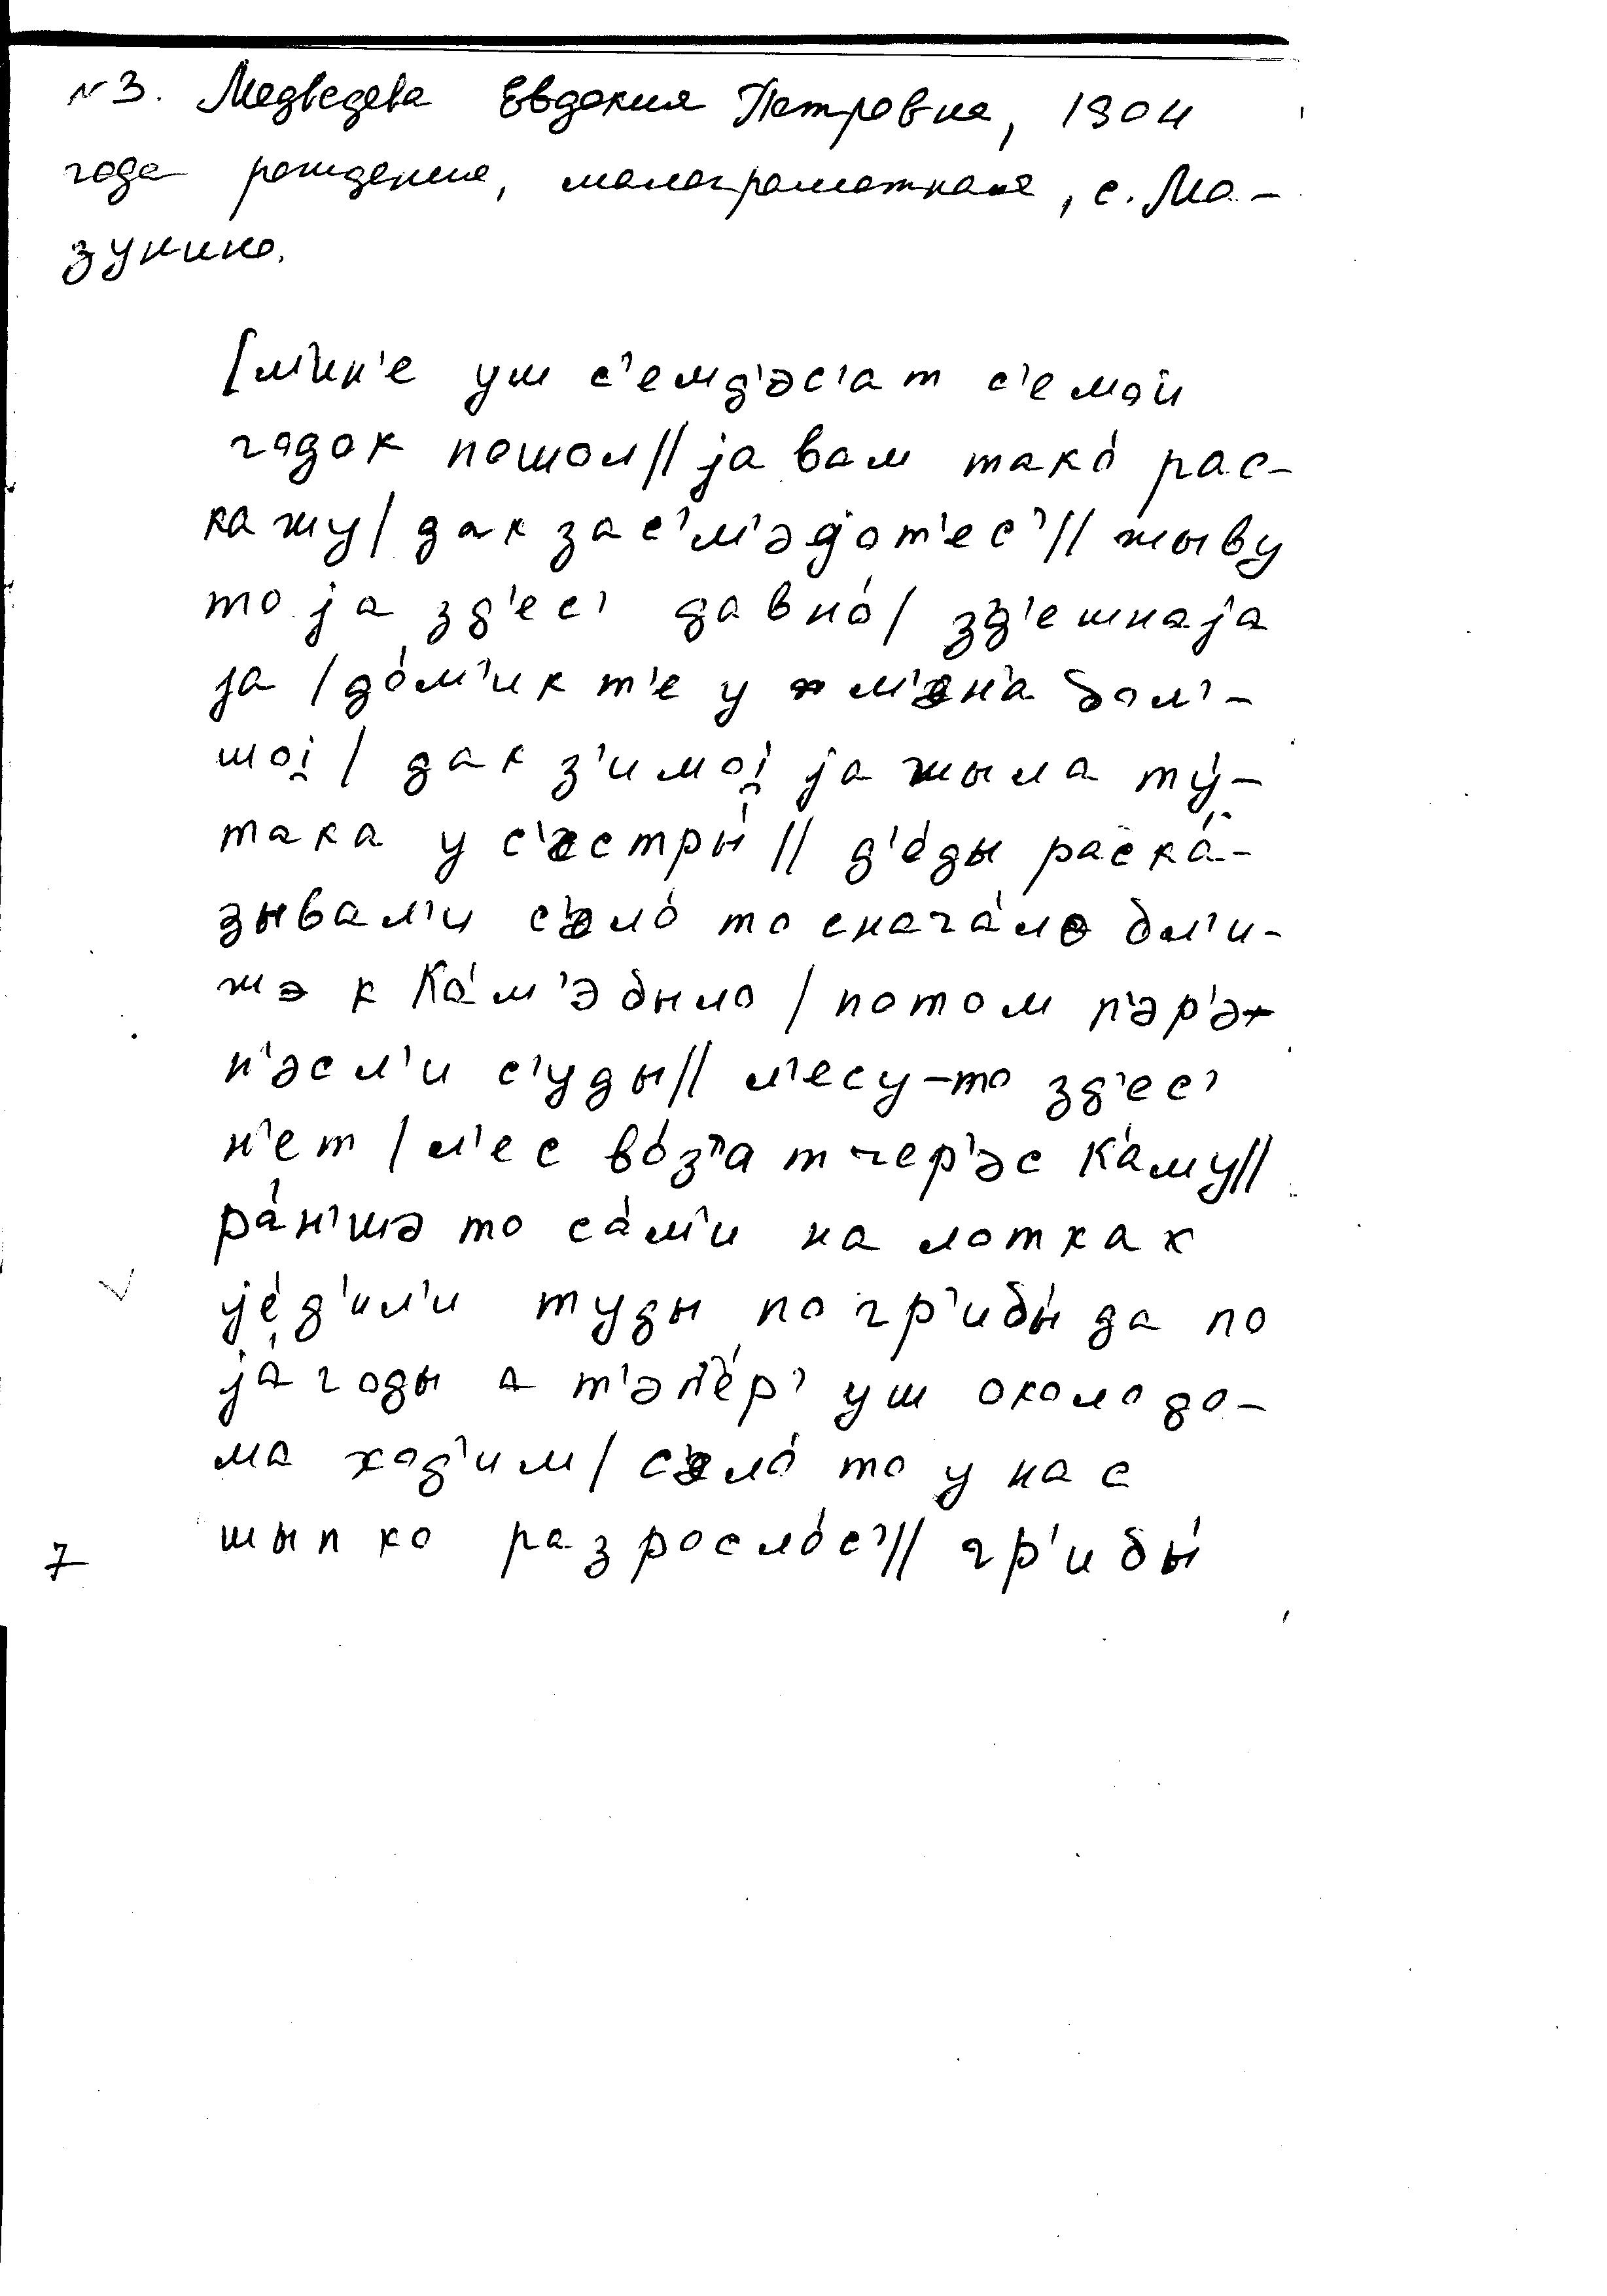 №3. Медведева Евдокия Петровна, 1904
года рождения, малограмотная, с. Ма-
зунино.
[м'ин'е уш с'емд'әс'ат с'емой
годок пошол// ја вам тако́ рас-
кажу/ дак зас'м'әјот'ес'// жыву
то ја зд'ес' давно́/ зд'ешнаја
ја /до́м'ик т'е у м'ән'а бол'-
шој/ дак з'имој ја жыла ту́-
така у с'естры́ // д'е́ды раска́-
зывал'и с'әло́ то снача́ла бл'и-
жә к Ка́м'ә было / потом п'әр'ә-
н'әсл'и с'уды// л'есу-то зд'ес'
н'ет / л'ес во́з'ат чер'әс Ка́му//
ра́н'шә то са́м'и на лотках
је́д'ил'и туды по гр'ибы́ да по
ја́годы а т'әп'е́р' уш около до-
ма ход'им/ с'әло́ то у нас
шыпко разросло́с'// гр'ибы́
7